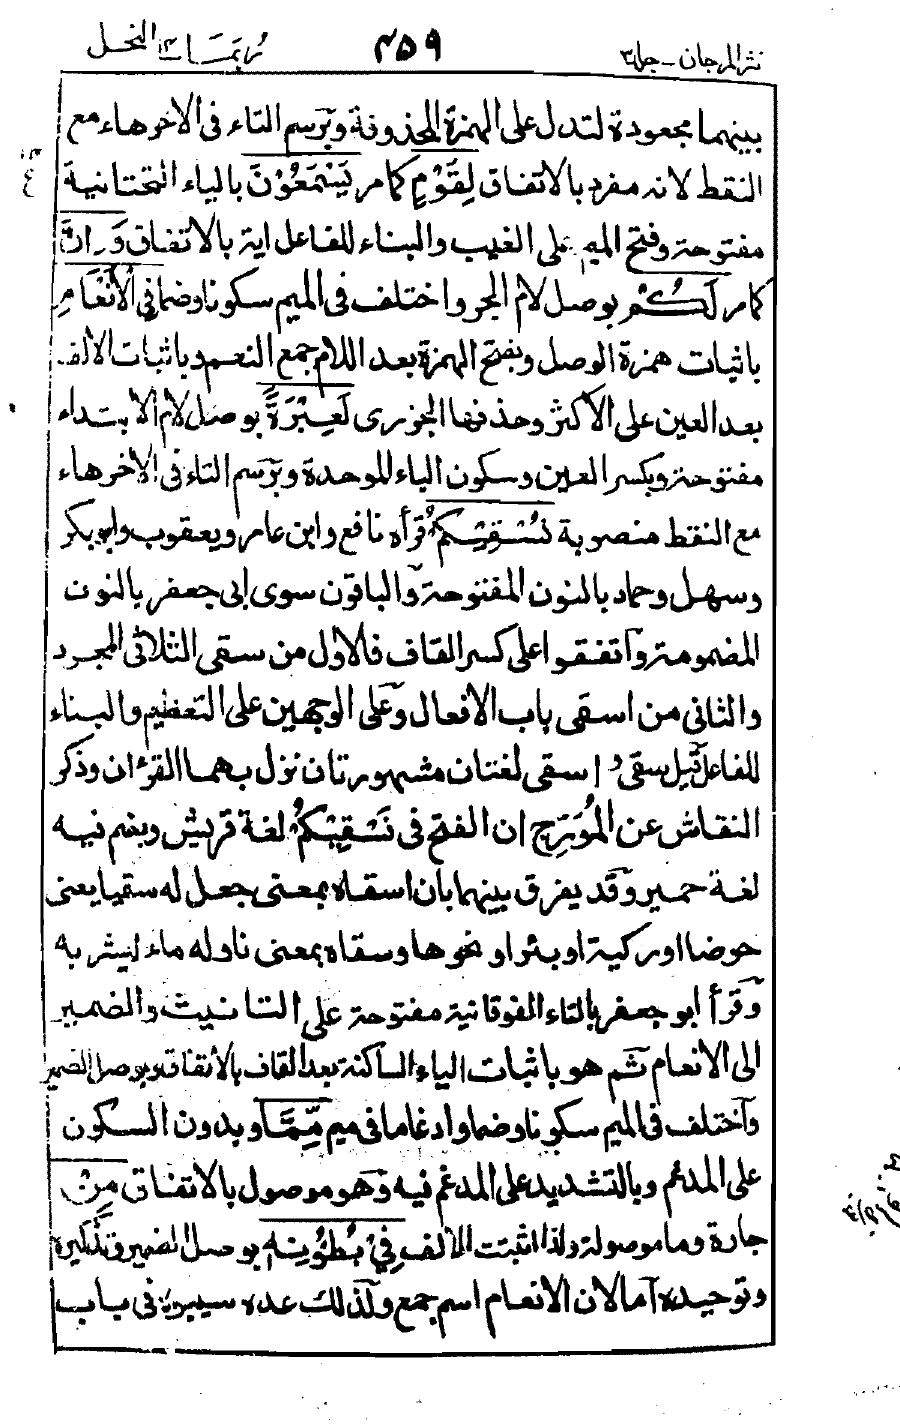 نثر المرجان - جلد ٣ ٤٥٩ ربما ١٤ النحل
بينهما مجعودة لتدل على الهمزة المحذوفة وترسم التاء فى الآخر هاء مع
النقط لانه مفرد بالاتفاق لِقَوْمٍ كما مر يَسْمَعُوْنَ بالياء التحتانية
مفتوحة وفتح الميم على الغيب والبناء للفاعل اية بالاتفاق وَاِنَّ
كما مر لَكُمْ بوصل لام الجر واختلف فى الميم سكونا وضما فِى الْاَنْعَامِ
باثبات همزة الوصل وبفتح الهمزة بعد اللام جمع النعم وباثبات الالف
بعد العين على الاكثر وحذفها الجزرى لَعِبْرَةً بوصل لام الابتداء
مفتوحة وبكسر العين وسكون الباء الموحدة وترسم التاء فى الاخر هاء
مع النقط منصوبة نُسْقِيْكُمْ قرأه نافع وابن عامر ويعقوب وابو بكر
وسهل وحماد بالنون المفتوحة والباقون سوى ابى جعفر بالنون
المضمومة واتفقوا على كسر القاف فالاول من سقى الثلاثى المجرد
والثانى من اسقى باب الافعال وعلى الوجهين على التعظيم والبناء
للفاعل قيل سقى و اسقى لغتان مشهورتان نزل بهما القرءان وذكر
النقاش عن المُوَرِّجِ ان الفتح فى نَسْقِيْكُمْ لغة قريش وبضم فيه
لغة حمير وقد يفرق بينهما بأن اسقاه بمعنى جعل له سقيا يعنى
حوضا او ركية او بئرا او نحوها وسقاه بمعنى ناوله ماء ليشربه
وقرأ ابو جعفر بالتاء الفوقانية مفتوحة على التانيث والضمير
الى الانعام ثم هو باثبات الياء الساكنة بعد القاف بالاتفاق وبوصل الضمير
واختلف فى الميم سكونا وضما وادغاما فى ميم مِّمَّا وبدون السكون
على المدغم وبالتشديد على المدغم فيه وهو موصول بالاتفاق مِنْ
جارة وما موصولة ولذا اثبتت الالف فِيْ بُطُوْنِهٖ بوصل الضمير وتذكيره
وتوحيده اما لان الانعام اسم جمع ولذلك عده سيبويه فى باب